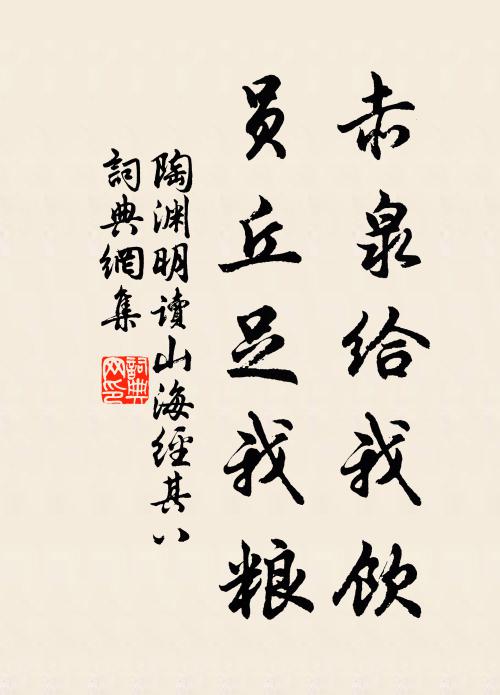 赤泉给我饮
员丘足我粮
陶渊明读山海經其八
詞典網集
詞典网印